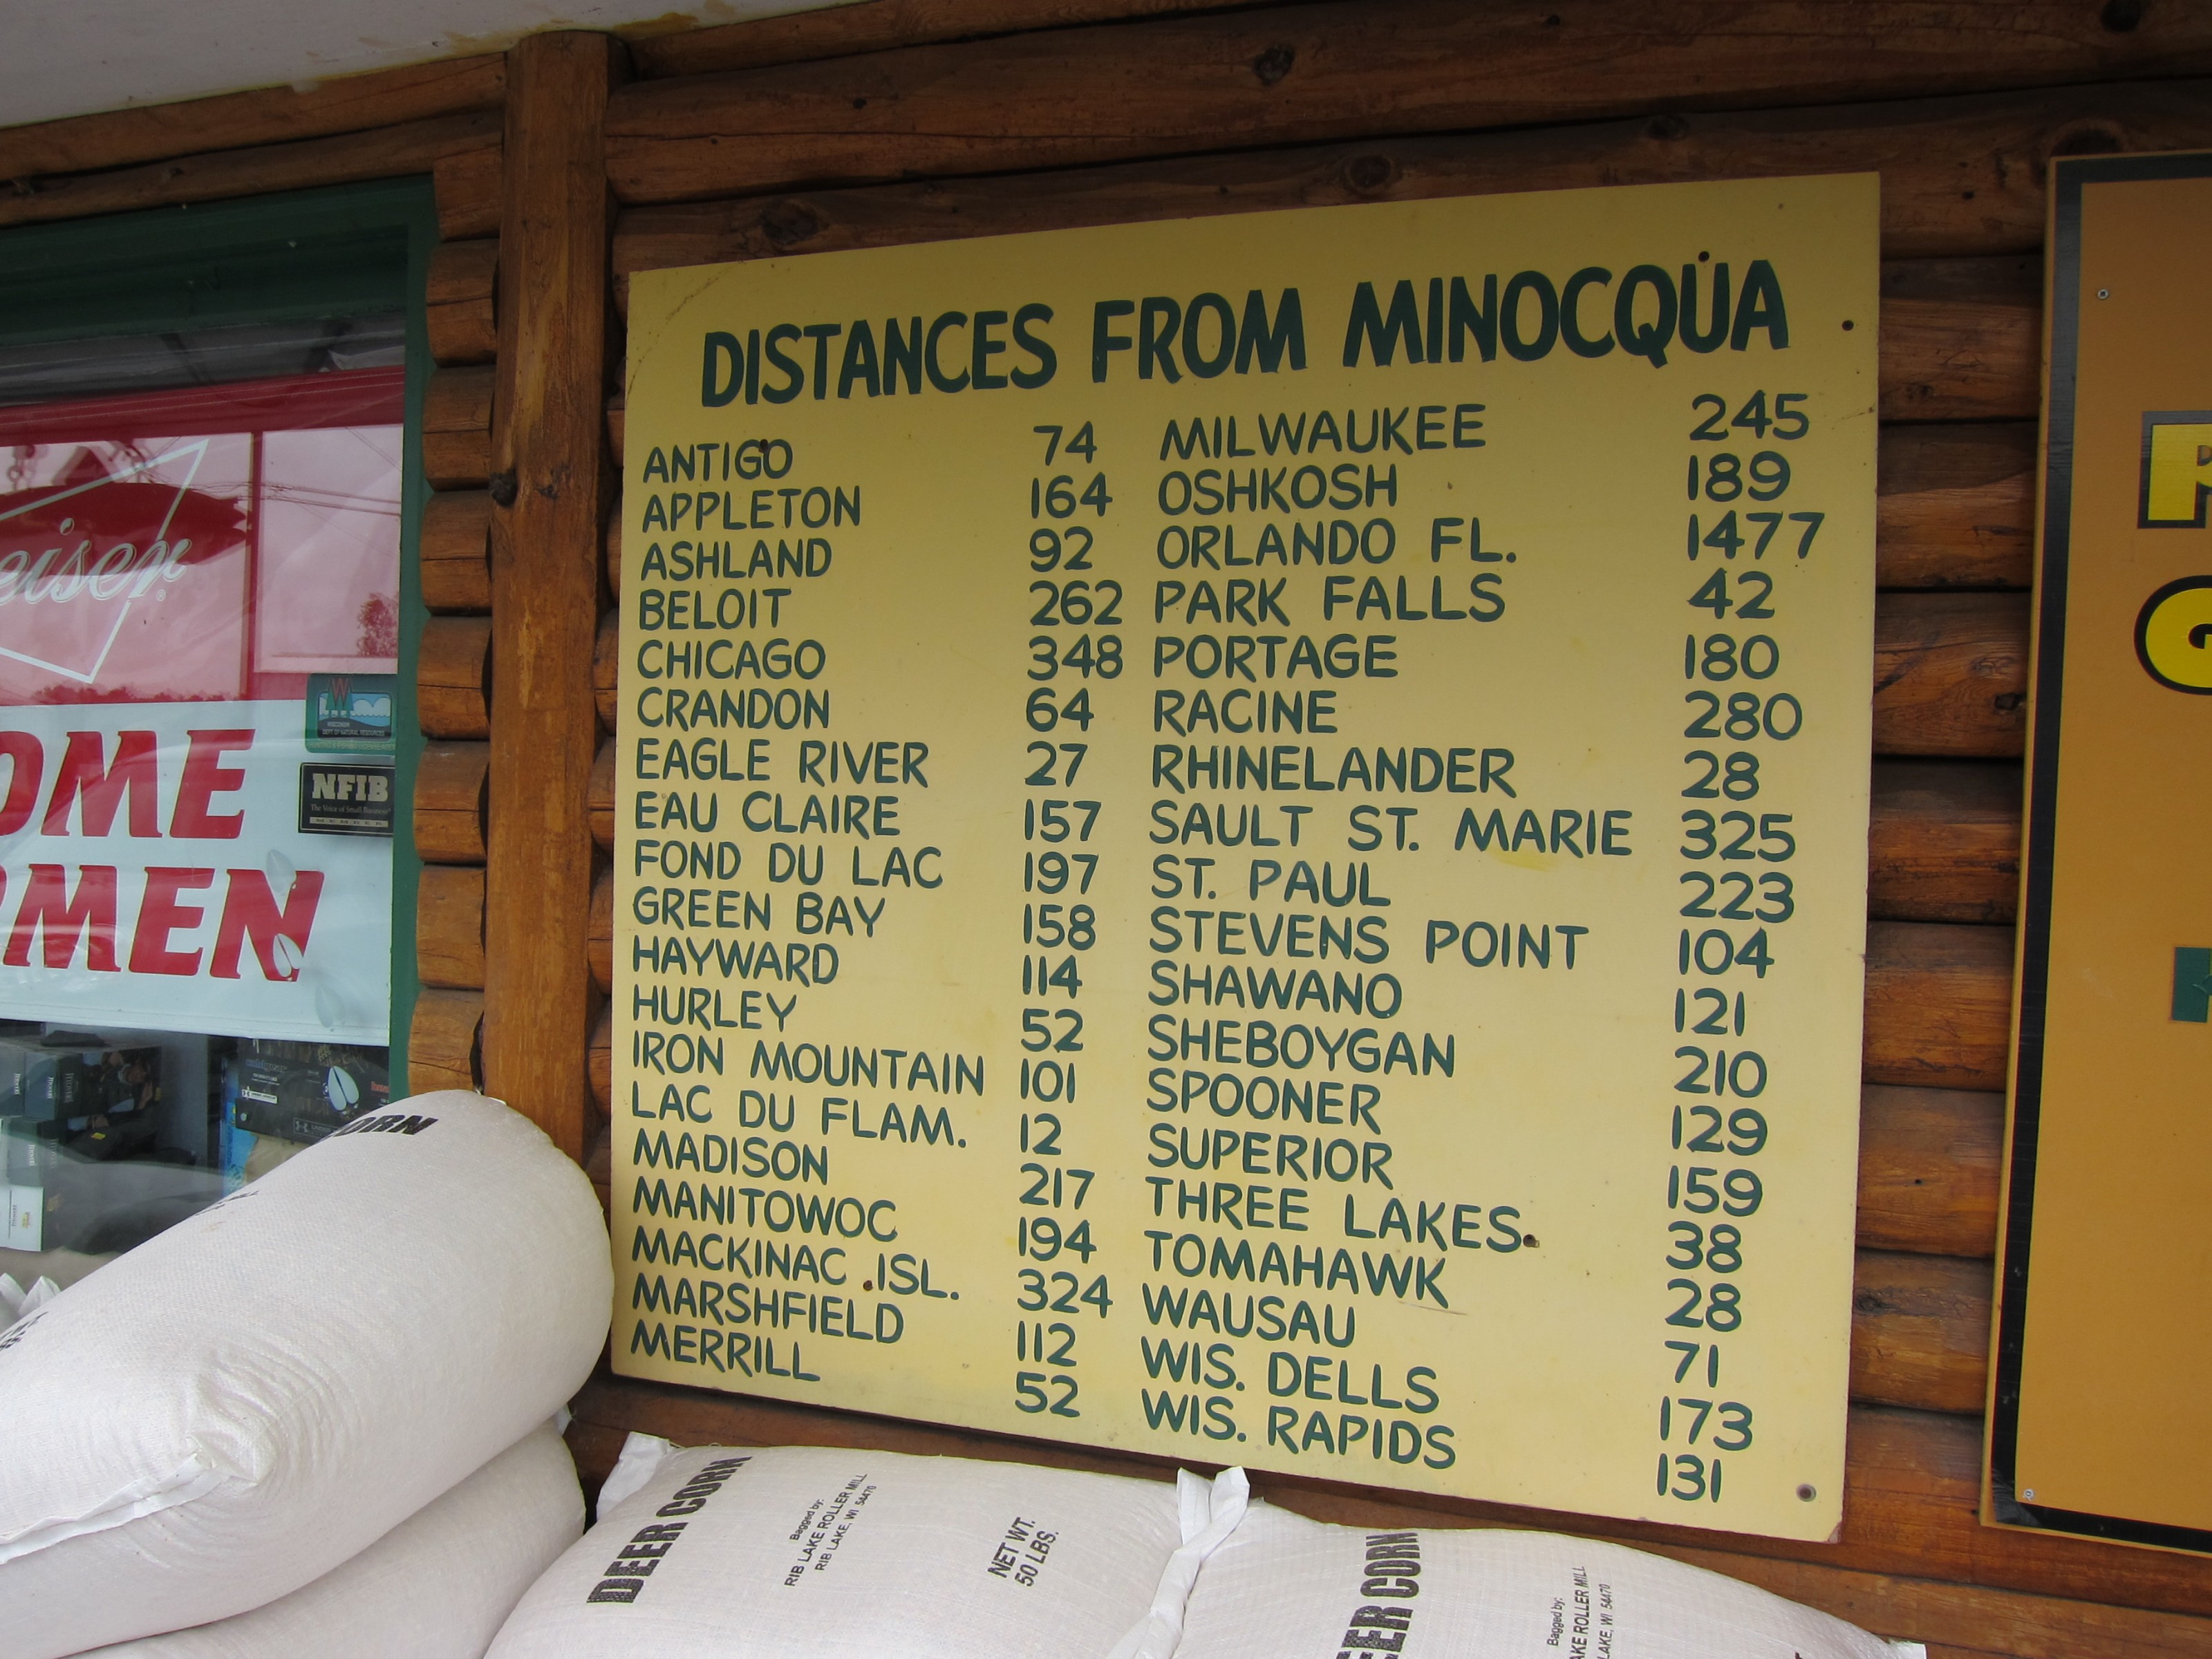 DISTANCES FROM MINOCQUA
ANTIGO 74
APPLETON 164
ASHLAND 92
BELOIT 262
CHICAGO 348
CRANDON 64
EAGLE RIVER 27
EAU CLAIRE 157
FOND DU LAC 197
GREEN BAY 158
HAYWARD 114
HURLEY 52
IRON MOUNTAIN 101
LAC DU FLAM. 12
MADISON 217
MANITOWOC 194
MACKINAC ISL. 324
MARSHFIELD 112
MERRILL 52
MILWAUKEE 245
OSHKOSH 189
ORLANDO FL. 1477
PARK FALLS 42
PORTAGE 180
RACINE 280
RHINELANDER 28
SAULT ST. MARIE 325
ST. PAUL 223
STEVENS POINT 104
SHAWANO 121
SHEBOYGAN 210
SPOONER 129
SUPERIOR 159
THREE LAKES 38
TOMAHAWK 28
WAUSAU 71
WIS. DELLS 173
WIS. RAPIDS 131
eiser
OME
RMEN
DEPT OF NATURAL RESOURCES
NFIB
The Voice of Small Business
MEMBER
ORN
DEER CORN
Bagged by:
RIB LAKE ROLLER MILL
RIB LAKE, WI 54470
NET WT.
50 LBS.
EER CORN
Bagged by:
AKE ROLLER MILL
LAKE, WI 54470